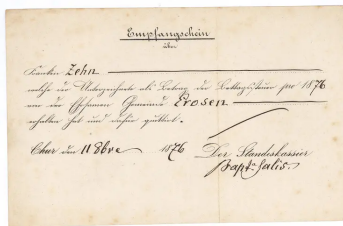 Empfangschein
über
Franken Zehn
welche der Unterzeichnete als Betrag der Bettagssteuer pro 1876
von der Ehrsamen Gemeinde Brosen
erhalten hat und dafür quittirt.
Chur den 11 8bre 1876
Der Standeskassier
Bapt. Salis.